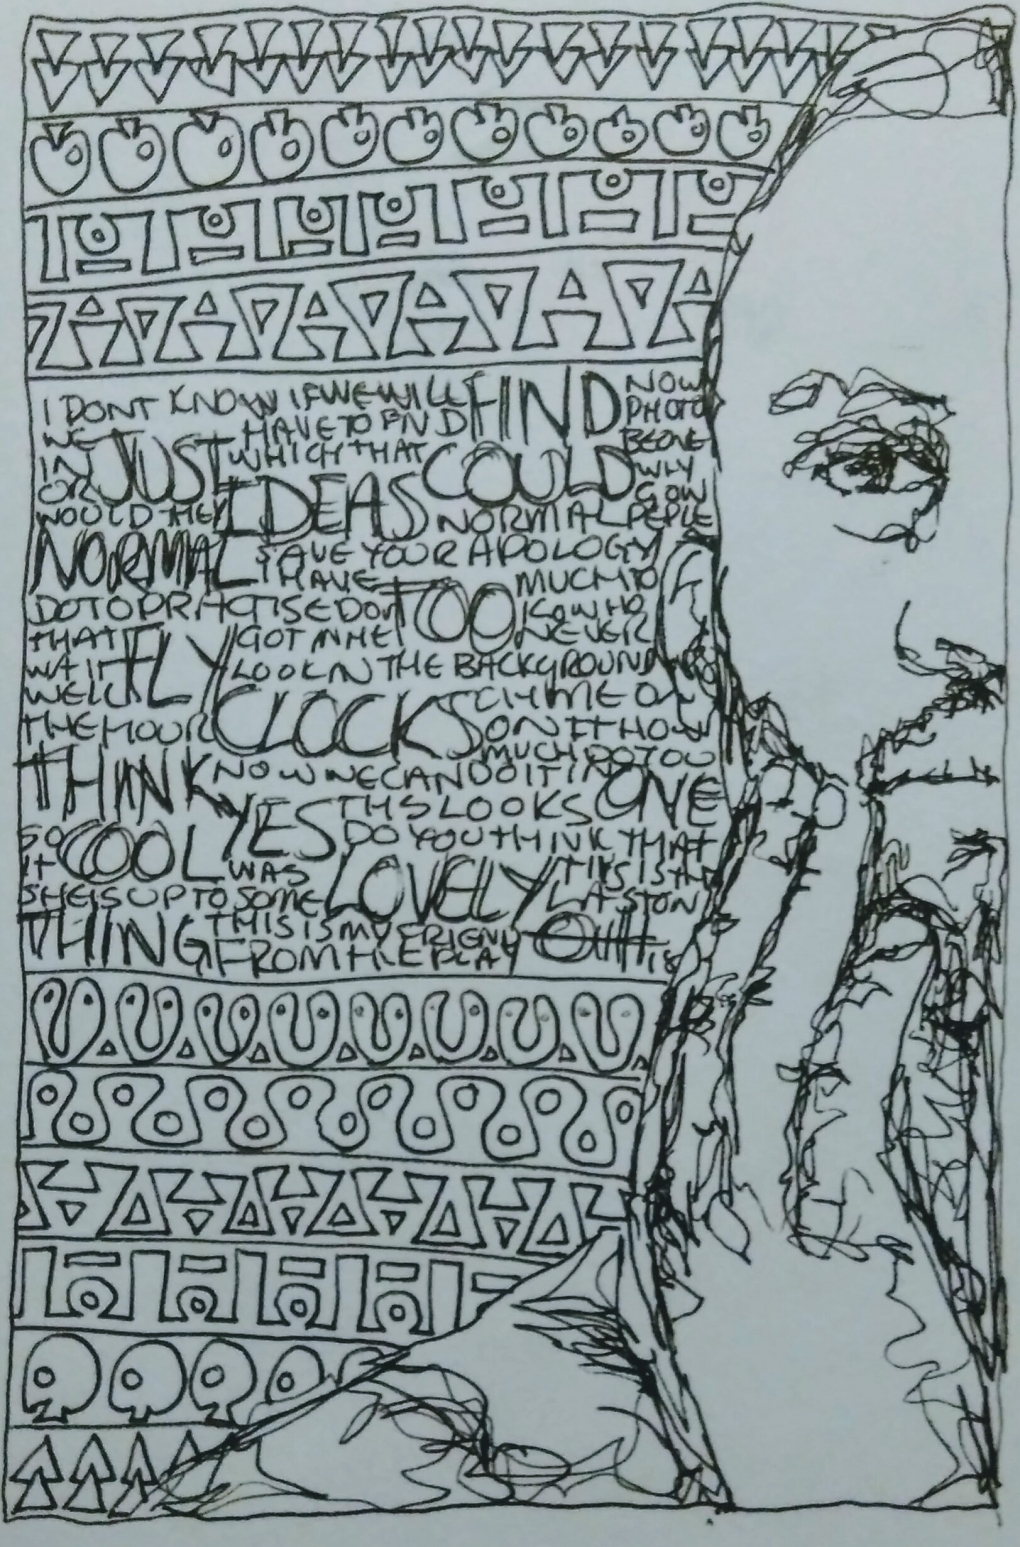 I DONT KNOW IF WE WILL FIND NOW
WE HAVE TO FIND PHOTO
IN JUST WHICH THAT COULD BEONE
OR IDEAS WLY
WOULD THEY NORMAL PEPLE
NORMAL SAVE YOUR APOLOGY
I HAVE TOO MUCH TO
DO TO PRACTISE DONT KNOW HO
THAT FLY GOT IN HE NEVER
WAIT LOOK N THE BACKGROUND
WELL CLOCKS CHIME ON
THE HOUR ON IT HOW
THINK MUCH DO YOU
NOW WE CAN DO IT IN ONE
YES THS LOOKS
SO COOL DO YOU THINK THAT
IT WAS LOVELY THIS IS AN
SHE IS UP TO SOME LAST ON
THING THIS IS MY FRIEND
FROM THE PLAY